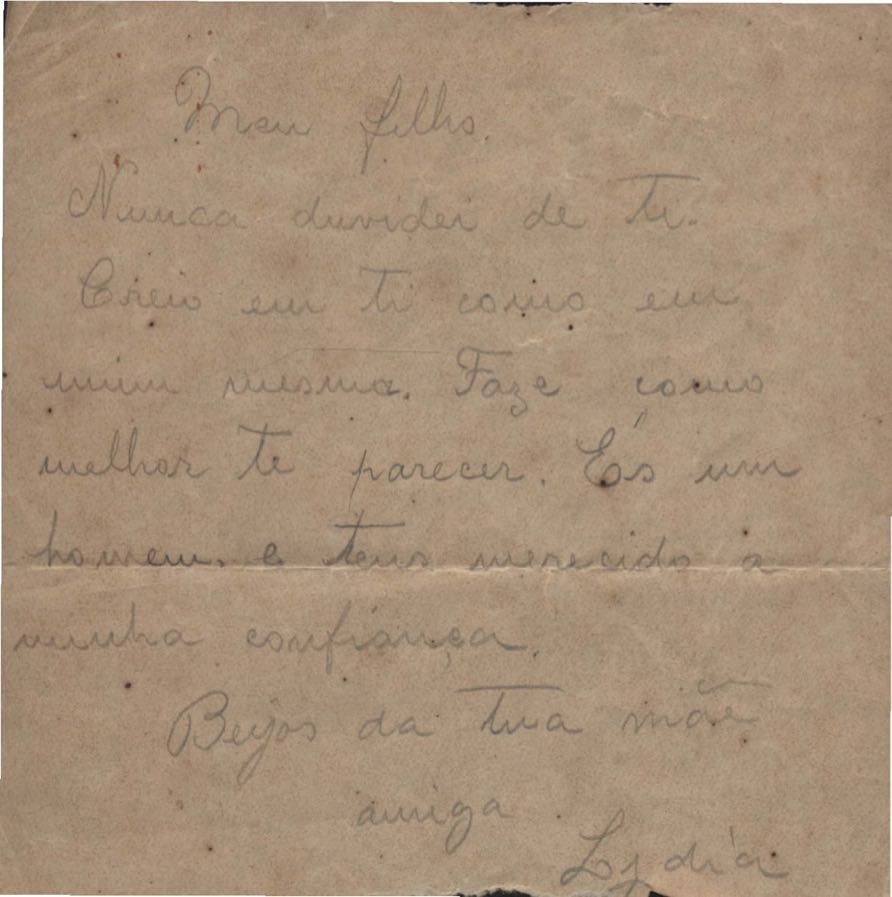 Meu filho.
Nunca duvidei de ti.
Creio em ti como em
mim mesma. Faze como
melhor te parecer. És um
homem. e tens merecido a
minha confiança.
Beijos da tua mãe
amiga
Lydia